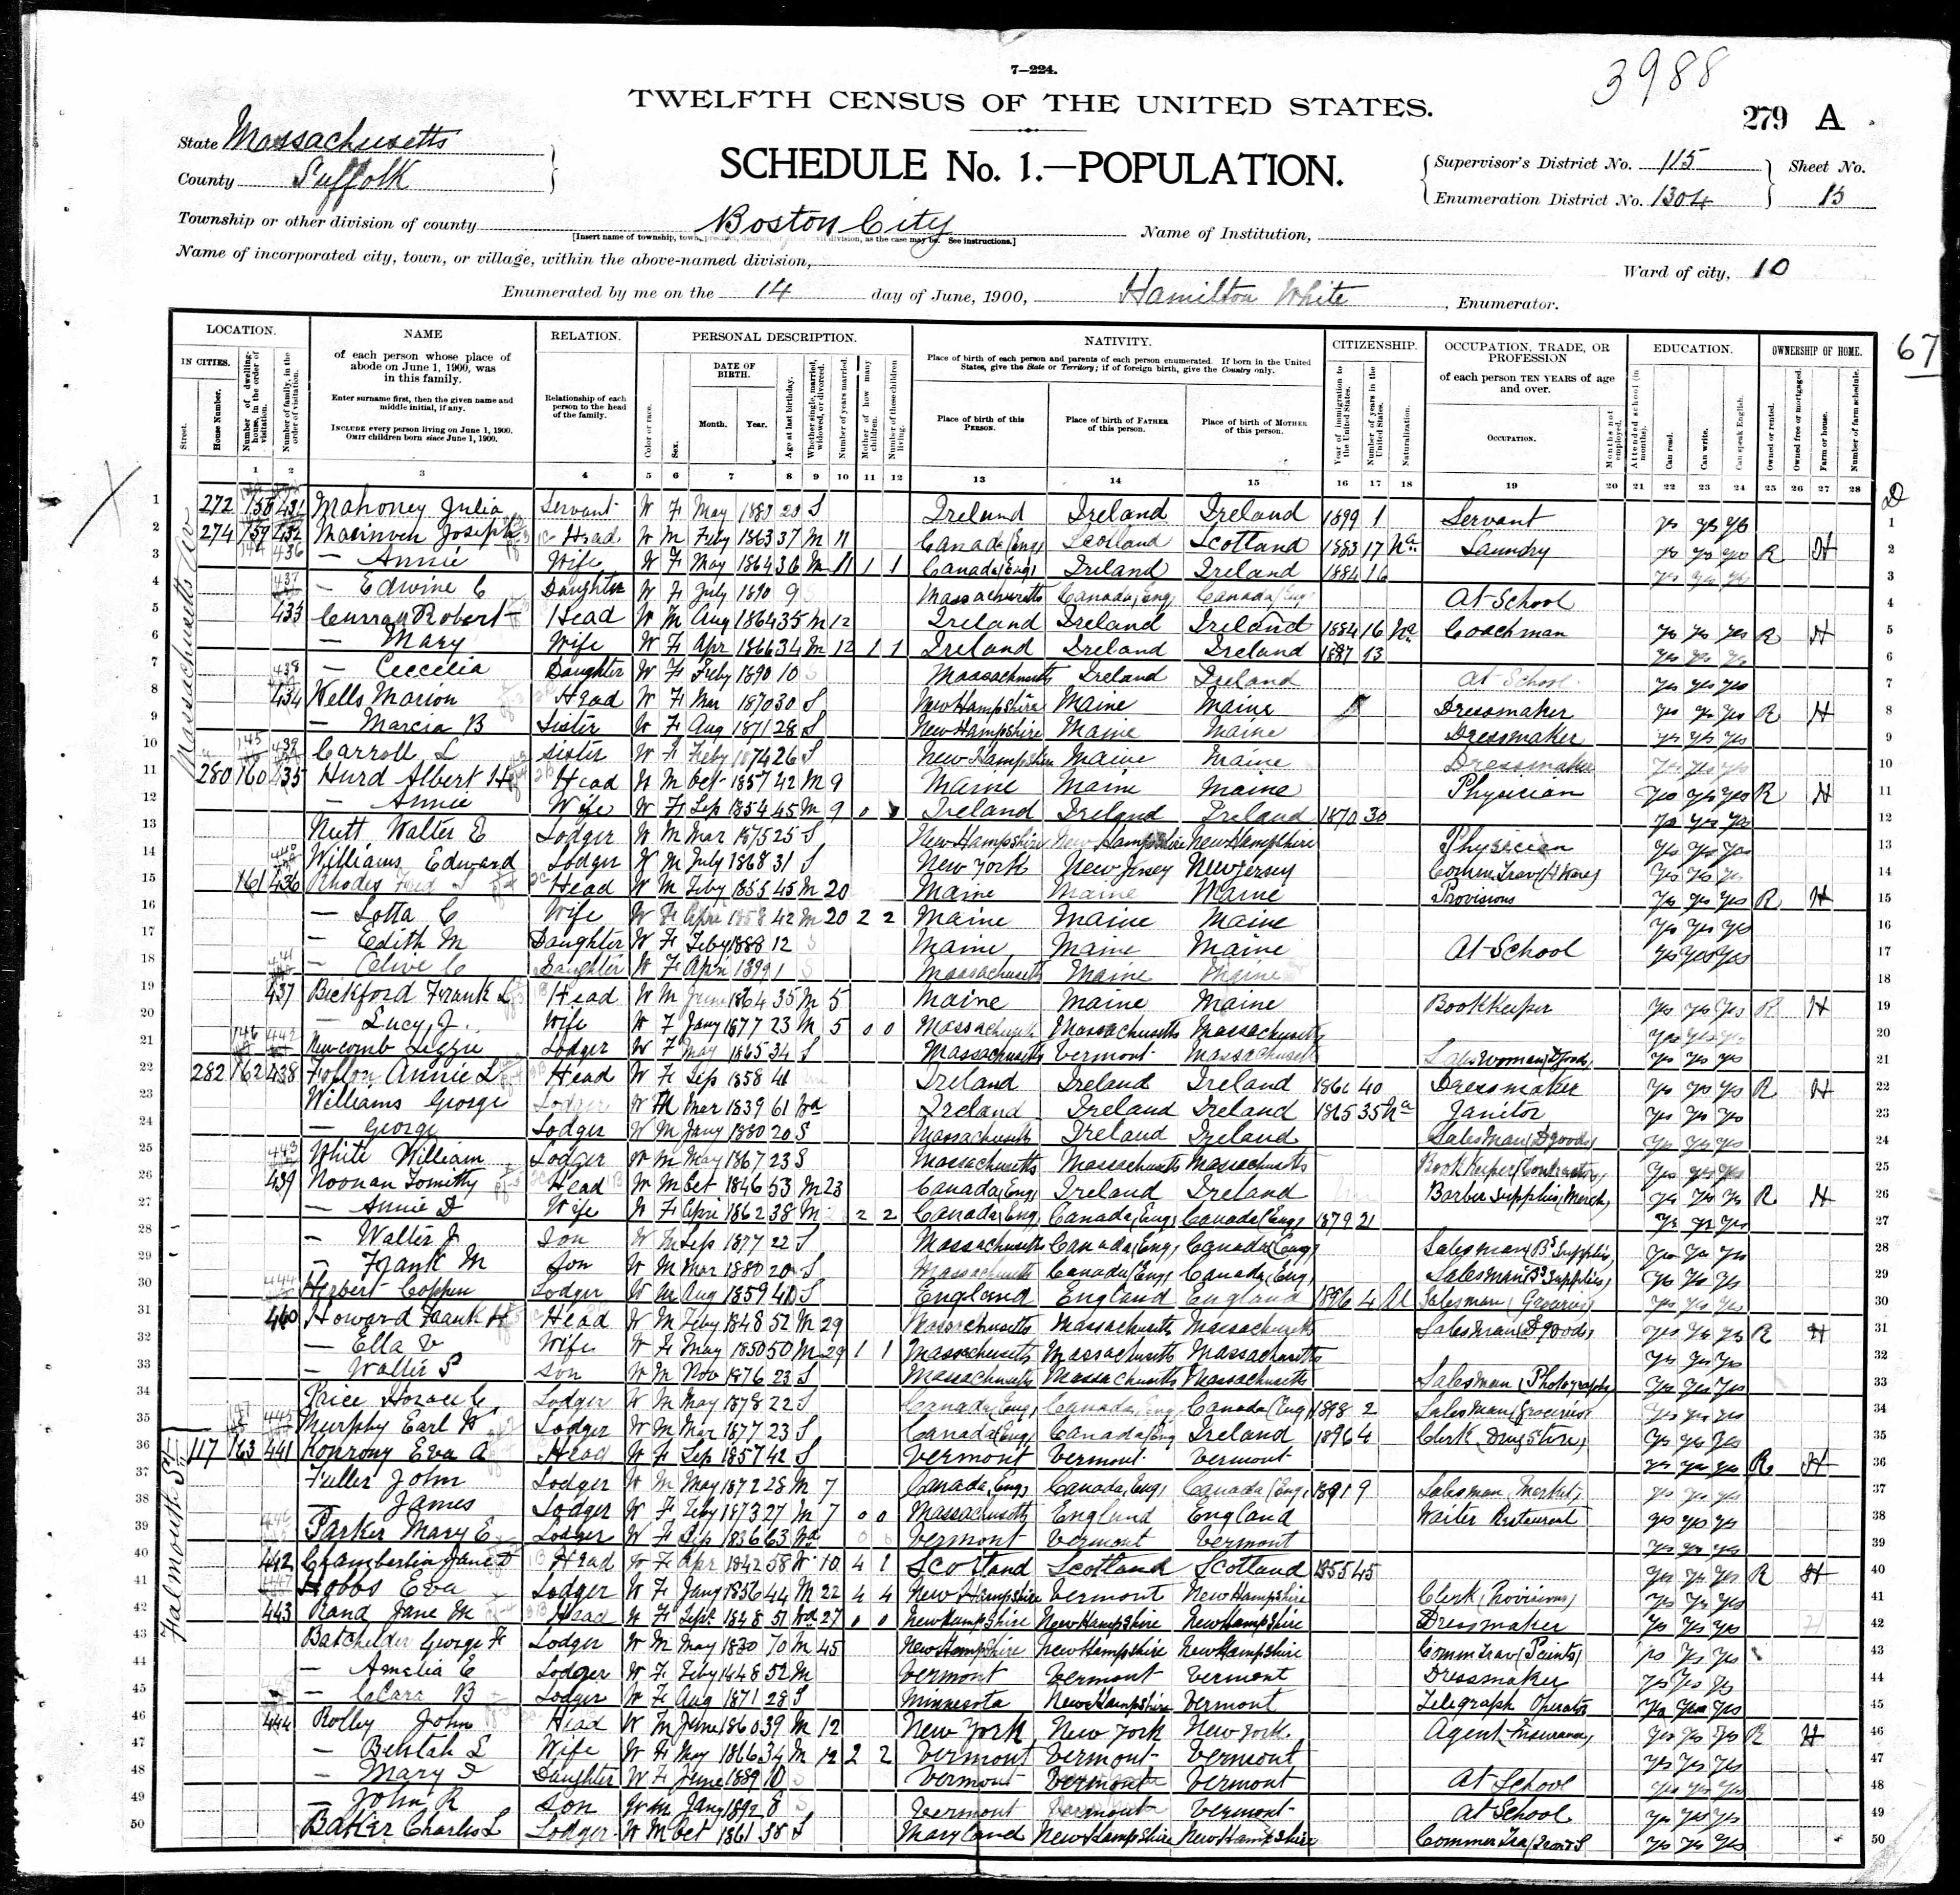 7—224.
3988
TWELFTH CENSUS OF THE UNITED STATES.
279 A
State Massachusetts
County Suffolk
SCHEDULE No. 1.—POPULATION.
Supervisor's District No. 115 Sheet No.
Enumeration District No. 1304
Township or other division of county Boston City Name of Institution,
[Insert name of township, town, precinct, district, or other civil division, as the case may be. See instructions.]
Name of incorporated city, town, or village, within the above-named division, Ward of city, 10
Enumerated by me on the 14 day of June, 1900, Hamilton White, Enumerator.
67
LOCATION. NAME RELATION. PERSONAL DESCRIPTION. NATIVITY. CITIZENSHIP. OCCUPATION, TRADE, OR PROFESSION EDUCATION. OWNERSHIP OF HOME.
IN CITIES. Street. House Number. Number of dwelling-house, in the order of visitation. Number of family, in the order of visitation.
of each person whose place of abode on June 1, 1900, was in this family.
Enter surname first, then the given name and middle initial, if any.
INCLUDE every person living on June 1, 1900. OMIT children born since June 1, 1900.
Relationship of each person to the head of the family.
Color or race. Sex. DATE OF BIRTH. Month. Year. Age at last birthday. Whether single, married, widowed, or divorced. Number of years married. Mother of how many children. Number of these children living.
Place of birth of each person and parents of each person enumerated. If born in the United States, give the State or Territory; if of foreign birth, give the Country only.
Place of birth of this PERSON. Place of birth of FATHER of this person. Place of birth of MOTHER of this person.
Year of immigration to the United States. Number of years in the United States. Naturalization.
of each person TEN YEARS of age and over.
OCCUPATION. Months not employed.
Attended school (in months). Can read. Can write. Can speak English.
Owned or rented. Owned free or mortgaged. Farm or house. Number of farm schedule.
1 2 3 4 5 6 7 8 9 10 11 12 13 14 15 16 17 18 19 20 21 22 23 24 25 26 27 28
Massachusetts Av
1 272 158 431 Mahoney Julia Servant W F May S Ireland Ireland Ireland 1899 1 Servant yes yes yes 1
2 274 159 432 Joseph Head W M Feby 1863 37 M 11 Canada (Eng) Scotland Scotland 1883 17 Na Laundry yes yes yes R H 2
3 — Annie Wife W F May 1864 36 M 11 1 1 Canada (Eng) Ireland Ireland 1884 16 yes yes yes 3
4 — Edwine C Daughter W F July 1890 9 S Massachusetts Canada (Eng) Canada (Eng) At School 4
5 433 Curran Robert Head W M Aug 1864 35 M 12 Ireland Ireland Ireland 1884 16 Na Coachman yes yes yes R H 5
6 — Mary Wife W F Apr 1866 34 M 12 1 1 Ireland Ireland Ireland 1887 13 yes yes yes 6
7 — Cecelia Daughter W F Feby 1890 10 S Massachusetts Ireland Ireland At School yes yes yes 7
8 434 Wells Marion Head W F Mar 1870 30 S New Hampshire Maine Maine Dressmaker yes yes yes R H 8
9 — Marcia B Sister W F Aug 1871 28 S New Hampshire Maine Maine Dressmaker yes yes yes 9
10 Carroll L Sister W F Feby 1874 26 S New Hampshire Maine Maine Dressmaker yes yes yes 10
11 280 160 435 Hurd Albert H Head W M Oct 1857 42 M 9 Maine Maine Maine Physician yes yes yes R H 11
12 — Annie Wife W F Sep 1854 45 M 9 0 Ireland Ireland Ireland 1870 30 yes yes yes 12
13 Nutt Walter E Lodger W M Mar 1875 25 S New Hampshire New Hampshire New Hampshire Physician yes yes yes 13
14 Williams Edward Lodger W M July 1868 31 S New York New Jersey New Jersey Commn Trav (H Ware) yes yes yes 14
15 161 436 Rhodes Fred Head W M Feby 1855 45 M 20 Maine Maine Maine Provisions yes yes yes R H 15
16 — Lotta C Wife W F Apri 1858 42 M 20 2 2 Maine Maine Maine yes yes yes 16
17 — Edith M Daughter W F Feby 1888 12 S Maine Maine Maine At School yes yes yes 17
18 — Olive C Daughter W F Apri 1899 1 S Massachusetts Maine Maine 18
19 437 Bickford Frank L Head W M June 1864 35 M 5 Maine Maine Maine BookKeeper yes yes yes R H 19
20 — Lucy J. Wife W F Jany 1877 23 M 5 0 0 Massachusetts Massachusetts Massachusetts yes yes yes 20
21 Newcomb Lizzie Lodger W F May 1865 34 S Massachusetts Vermont Massachusetts Saleswoman (D goods) yes yes yes 21
22 282 162 438 Annie L Head W F Sep 1858 41 Ireland Ireland Ireland 40 Dressmaker yes yes yes R H 22
23 Williams George Lodger W M Mar 1839 61 Wd Ireland Ireland Ireland 1865 35 Na Janitor yes yes yes 23
24 — George Lodger W M Jany 1880 20 S Massachusetts Ireland Ireland Salesman (D goods) yes yes yes 24
25 White William Lodger W M May 1867 23 S Massachusetts Massachusetts Massachusetts BookKeeper (Contractor) yes yes yes 25
26 439 Noonan Tomitty Head W M Oct 1846 53 M 23 Canada (Eng) Ireland Ireland Barber Supplies (Merch) yes yes yes R H 26
27 — Annie D Wife W F Apri 1862 38 M 2 2 Canada (Eng) Canada (Eng) Canada (Eng) 1879 21 yes yes yes 27
28 — Walter J Son W M Sep 1877 22 S Massachusetts Canada (Eng) Canada (Eng) Salesman (Bs Supplies) yes yes yes 28
29 — Frank M Son W M Mar 1880 20 S Massachusetts Canada (Eng) Canada (Eng) Salesman (Bs Supplies) yes yes yes 29
30 Herbert Coppen Lodger W M Aug 1859 40 S England England England 1896 4 Al Salesman (Groceries) yes yes yes 30
31 440 Howard Frank H Head W M Feby 1848 52 M 29 Massachusetts Massachusetts Massachusetts Salesman (D goods) yes yes yes R H 31
32 — Ella V Wife W F May 1850 50 M 29 1 1 Massachusetts Massachusetts Massachusetts yes yes yes 32
33 — Walter S Son W M Nov 1876 23 S Massachusetts Massachusetts Massachusetts Salesman (Photography) yes yes yes 33
34 Price Horace C Lodger W M May 1878 22 S Canada (Eng) Canada (Eng) Canada (Eng) 1898 2 Salesman (Groceries) yes yes yes 34
35 Murphy Earl W Lodger W M Mar 1877 23 S Canada (Eng) Canada (Eng) Ireland 1896 4 Clerk (Drug Store) yes yes yes 35
Falmouth St
36 117 163 441 Eva A Head W F Sep 1857 42 S Vermont Vermont Vermont yes yes yes R H 36
37 Fuller John Lodger W M May 1872 28 M 7 Canada (Eng) Canada (Eng) Canada (Eng) 1891 9 Salesman (Market) yes yes yes 37
38 — James Lodger W F Feby 1873 27 M 7 0 0 Massachusetts England England Waiter Restaurant yes yes yes 38
39 Parker Mary E Lodger W F Sep 1836 63 Wd Vermont Vermont Vermont yes yes yes 39
40 442 Chamberlin Jane D Head W F Apr 1842 58 W 10 4 1 Scotland Scotland Scotland 1855 45 yes yes yes R H 40
41 Hobbs Eva Lodger W F Jany 1856 44 M 22 4 4 New Hampshire Vermont New Hampshire Clerk (Provisions) yes yes yes 41
42 443 Rand Jane M Head W F Sept 1848 51 Wd 27 0 0 New Hampshire New Hampshire New Hampshire Dressmaker yes yes yes H 42
43 Batchelder George H Lodger W M May 1830 70 M 45 New Hampshire New Hampshire New Hampshire Commn Trav (Paints) yes yes yes 43
44 — Amelia E Lodger W F Feby 1848 52 M Vermont Vermont Vermont Dressmaker yes yes yes 44
45 — Clara B Lodger W F Aug 1871 28 S Minnesota New Hampshire Vermont Telegraph Operator yes yes yes 45
46 444 Rolley John Head W M June 1860 39 M 12 New York New York New York Agent (Insurance) yes yes yes R H 46
47 — Beulah L Wife W F May 1866 34 M 12 2 2 Vermont Vermont Vermont yes yes yes 47
48 — Mary D Daughter W F June 1889 10 S Vermont Vermont Vermont At School yes yes yes 48
49 — John R Son W M Jany 1892 8 S Vermont Vermont Vermont At School yes yes yes 49
50 Baker Charles L Lodger W M Oct 1861 38 S Maryland New Hampshire New Hampshire yes yes yes 50